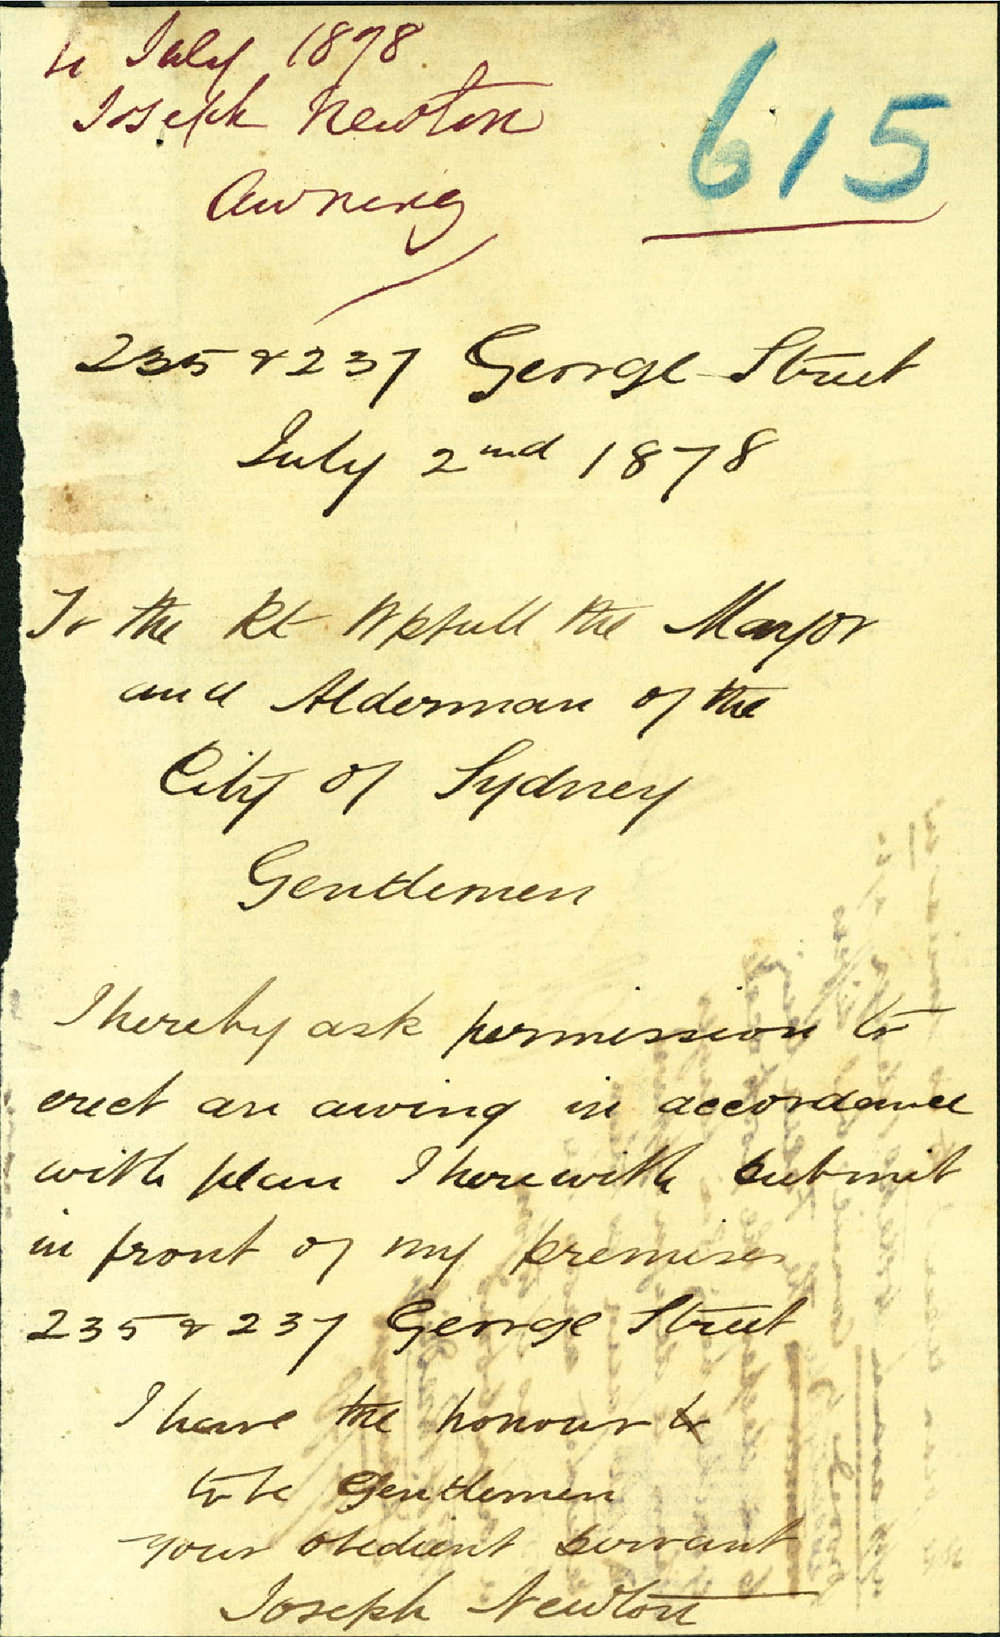 4 July 1878.
Joseph Newton
Awning
615
235 & 237 George Street
July 2nd 1878
To the Rt Wpfull the Mayor
and Alderman of the
City of Sydney
Gentlemen
I hereby ask permission to
erect an awing in accordance
with plan I herewith submit
in front of my premises
235 & 237 George Street
I have the honour to
to be Gentlemen
your obedient servant
Joseph Newton